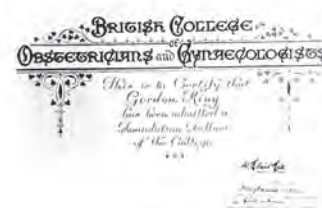 BRITISH COLLEGE
OF
OBSTETRICIANS and GYNAECOLOGISTS
This is to Certify that
Gordon King
has been admitted a
Foundation
of the College